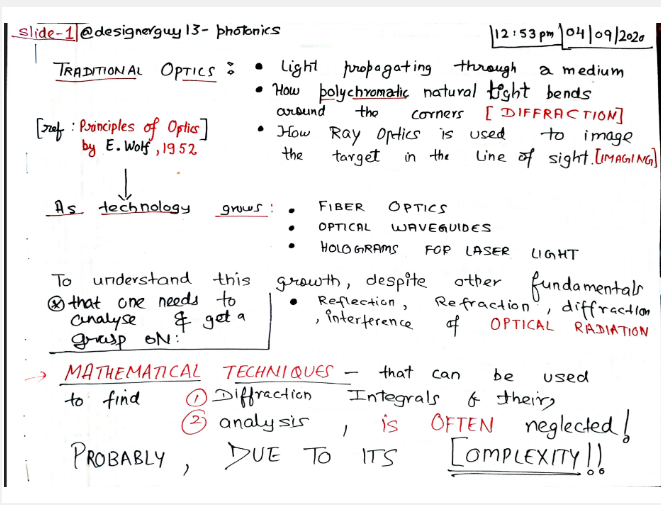 slide-1 @designerguy13- photonics 12:53pm 04/09/2020
TRADITIONAL OPTICS : • Light propagating through a medium
• How polychromatic natural light bends
around the corners [DIFFRACTION]
[ref : Principles of Optics]
by E. Wolf, 1952
• How Ray Optics is used to image
the target in the line of sight. [IMAGING]
As technology grows : • FIBER OPTICS
• OPTICAL WAVEGUIDES
• HOLOGRAMS FOR LASER LIGHT
To understand this growth, despite other fundamentals
⊗ that one needs to
analyse & get a
grasp ON:
• Reflection, Refraction, diffraction
, interference of OPTICAL RADIATION
→ MATHEMATICAL TECHNIQUES - that can be used
to find ① Diffraction Integrals & their
② analysis, is OFTEN neglected!
PROBABLY, DUE TO ITS COMPLEXITY!!